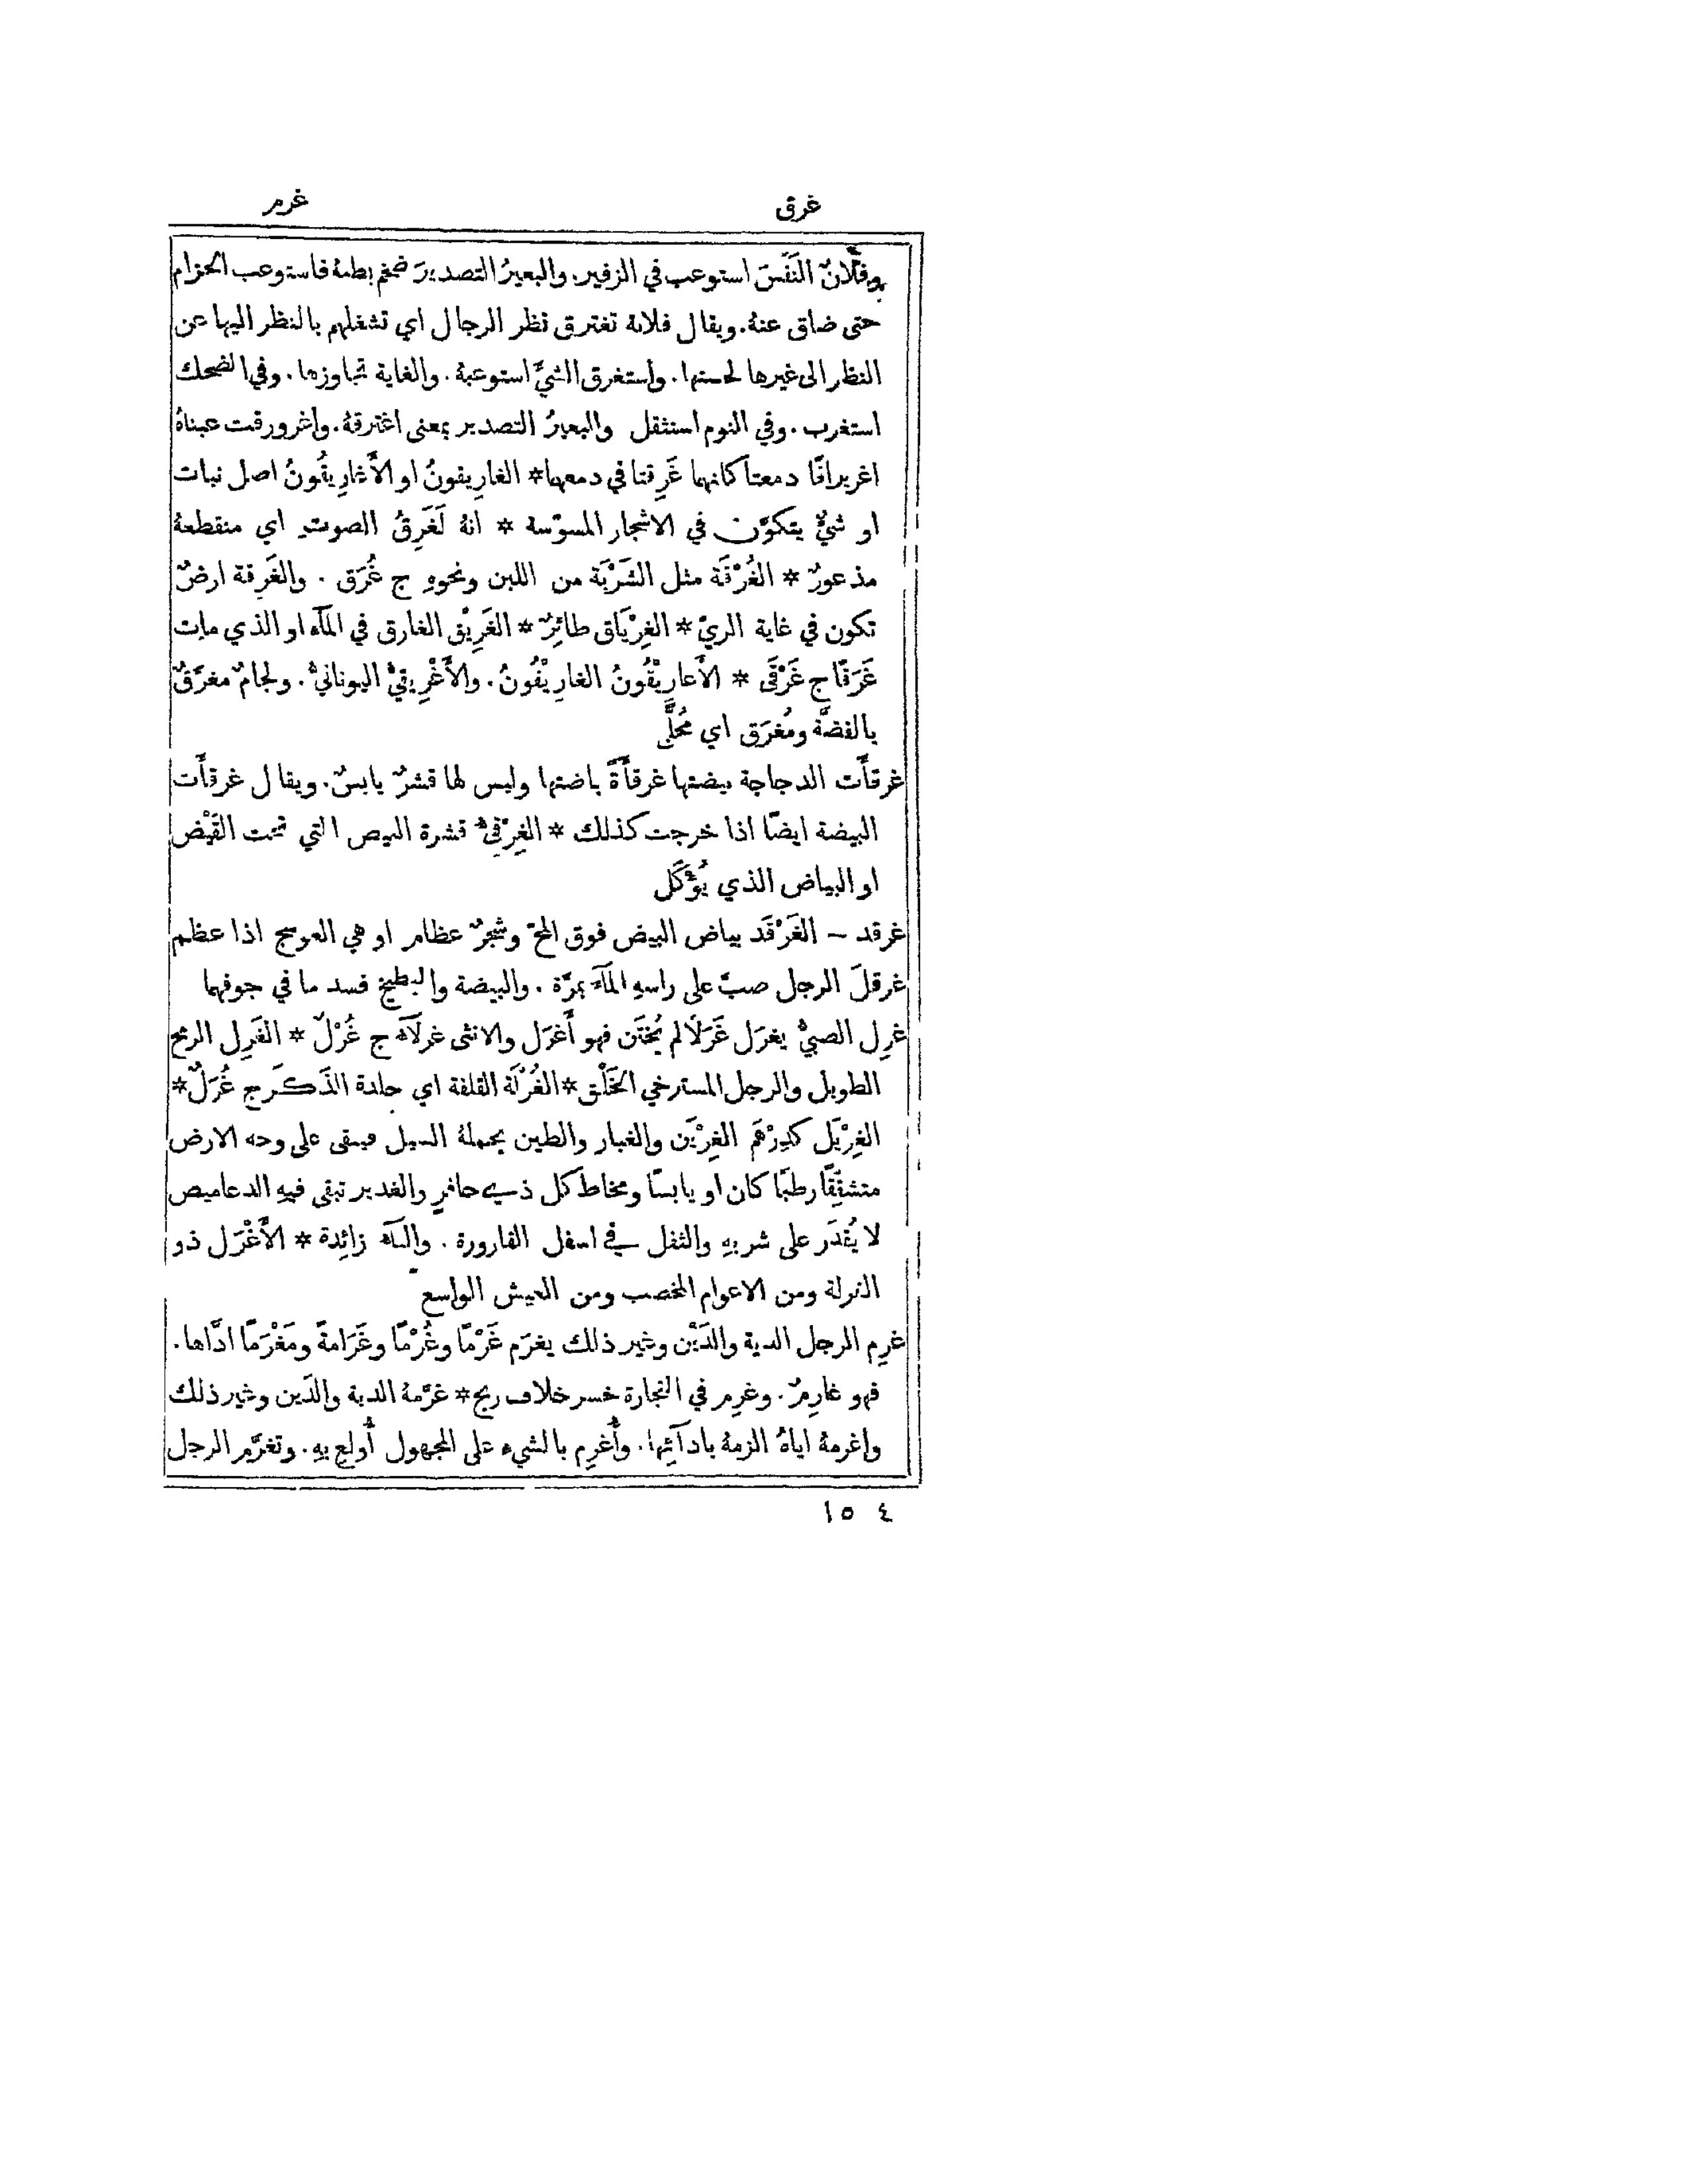 غرق غرم
وفلانٌ النَفَسَ استوعب في الزفير. والبعيرُ التصديرَ ضخم بطنهُ فاستوعب الحزام
حتى ضاق عنهُ. ويقال فلانة تغترق نظر الرجال اي تشغلهم بالنظر اليها عن
النظر الى غيرها لحسنها. واستغرق الشيَّ استوعبهُ. والغاية تجاوزها. وفي الضحك
استغرب. وفي النوم استثقل والبعيرُ التصدير بمعنى اغترقهُ. واغرورقت عيناهُ
اغريراقًا دمعتا كانهما غَرِقتا في دمعهما* الغارِيقونُ او الأَغارِيقُونُ اصل نبات
او شيٌّ يتكوَّن في الاشجار المسوّسة * انهُ لَغَرِقُ الصوت اي منقطعهُ
مذعورٌ * الغُرْقَة مثل الشَرْبَة من اللبن ونحوهِ ج غُرَق . والغَرِقة ارضٌ
تكون في غاية الريّ * الغِرْيَاق طائِرٌ * الغَرِيْق الغارق في المآء او الذي مات
غَرَقًا ج غَرْقَى * الأَغارِيْقُونُ الغارِيْقُونُ. والأَغْرِيقيُّ اليونانيُّ. ولجامٌ مغرَّقٌ
بالفضَّة ومُغرَق اي مُحَلًّى
غرقأَت الدجاجة بيضتها غرقأَةً باضتها وليس لها قشرٌ يابسٌ. ويقال غرقأَت
البيضة ايضًا اذا خرجت كذلك * الغِرْقِئُ قشرة البيض التي تحت القَيْض
او البياض الذي يُؤْكَل
غرقد – الغَرْقَد بياض البيض فوق المحّ وشجرٌ عظام او هي العوسج اذا عظم
غرقلَ الرجل صبَّ على راسهِ المآءَ بمرَّة . والبيضة والبطيخ فسد ما في جوفهما
غرِل الصبيُّ يغرَل غَرَلًا لم يُختَن فهو أَغرَل والانثى غرلآء ج غُرْلٌ * الغَرِل الرمح
الطويل والرجل المسترخي الخَلْق * الغُرْلَة القلفة اي جلدة الذَكَر ج غُرَلٌ *
الغِرْيَل كدِرْهَم الغِرْيَن والغبار والطين يحملهُ السيل فيبقى على وجه الارض
متشقِّقًا رطبًا كان او يابسًا ومخاط كل ذي حافرٍ والغدير تبقى فيهِ الدعاميص
لا يُقدَر على شربهِ والثفل في اسفل القارورة . واليآء زائِدة * الأَغْرَل ذو
الغرلة ومن الاعوام المخصب ومن العيش الواسع
غرِم الرجل الدية والدَيْن وغير ذلك يغرَم غَرْمًا وغُرْمًا وغَرَامةً ومَغْرَمًا ادَّاها.
فهو غارِمٌ. وغرِم في التجارة خسر خلاف ربح * غرَّمهُ الدية والدَين وغير ذلك
واغرمهُ اياهُ الزمهُ بادآئِها. وأُغرِم بالشيء على المجهول أُولع بهِ. وتغرَّم الرجل
٤ ١٥